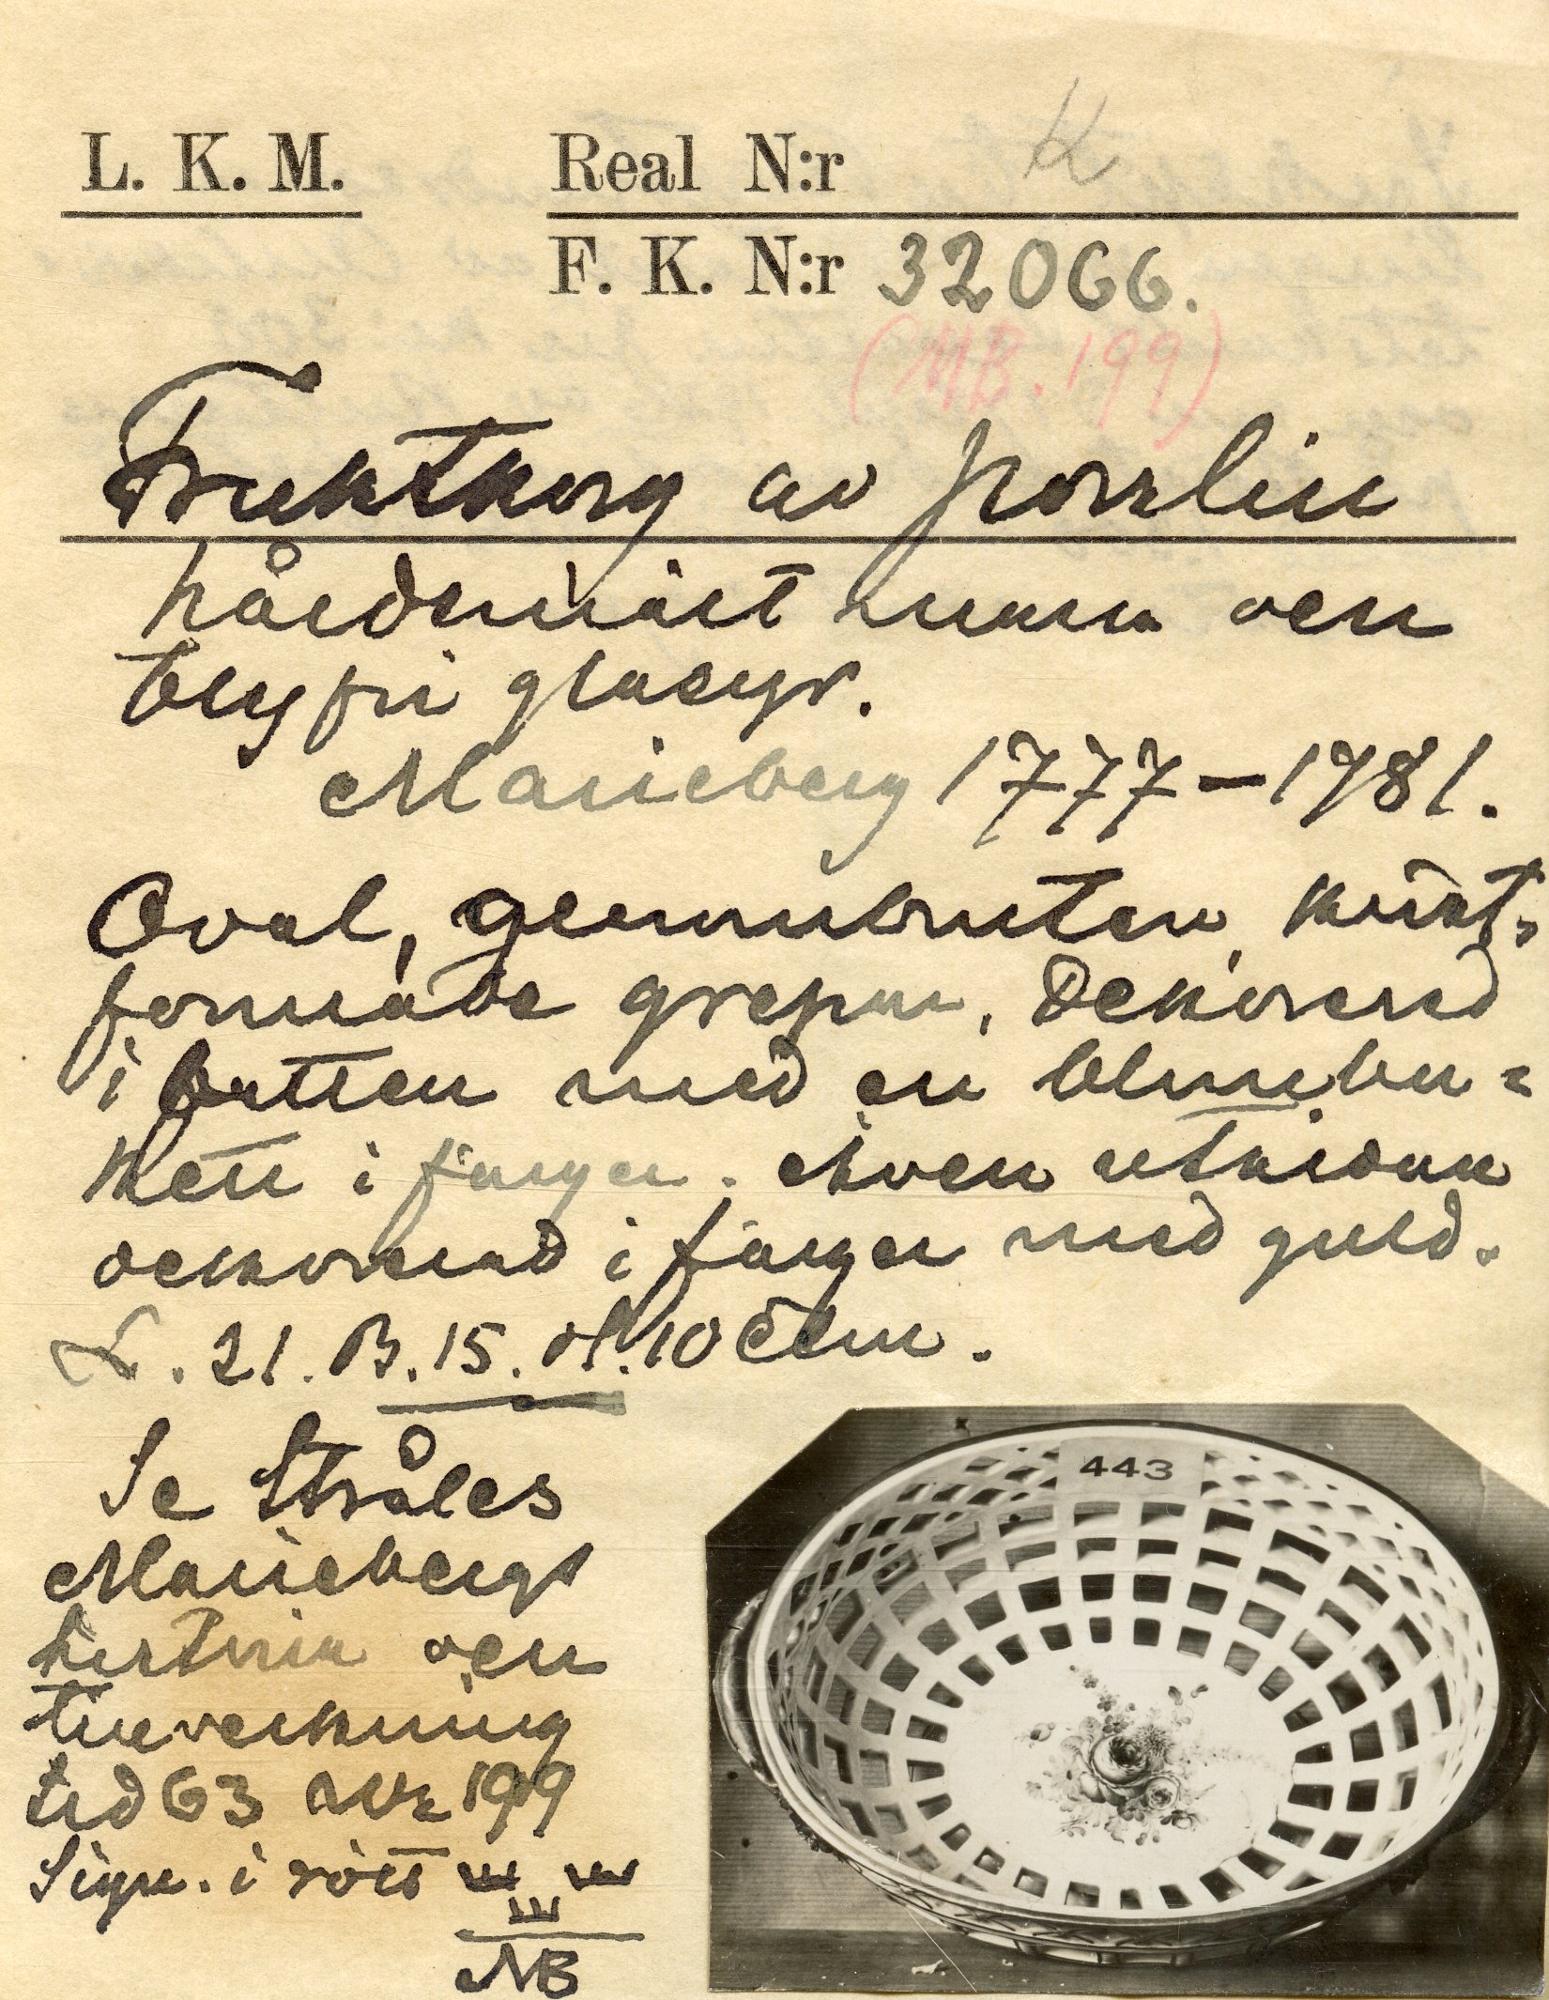 L. K. M.
Real N:r K
F. K. N:r 32066.
(MB. 199)
Fruktkorg av porslin
hårdemärt massa och
blyfri glasyr.
Marieberg 1777–1781.
Oval, genombruten, kvist-
formade grepar, dekorerad
i botten med en blombu=
kett i färger. Även utsidan
dekorerad i färger med guld.
L. 21. B. 15. H. 10 ctm.
Se Stråles
Mariebergs
historia och
tillverkning
sid 63 No 199
Sign. i rött
MB
443